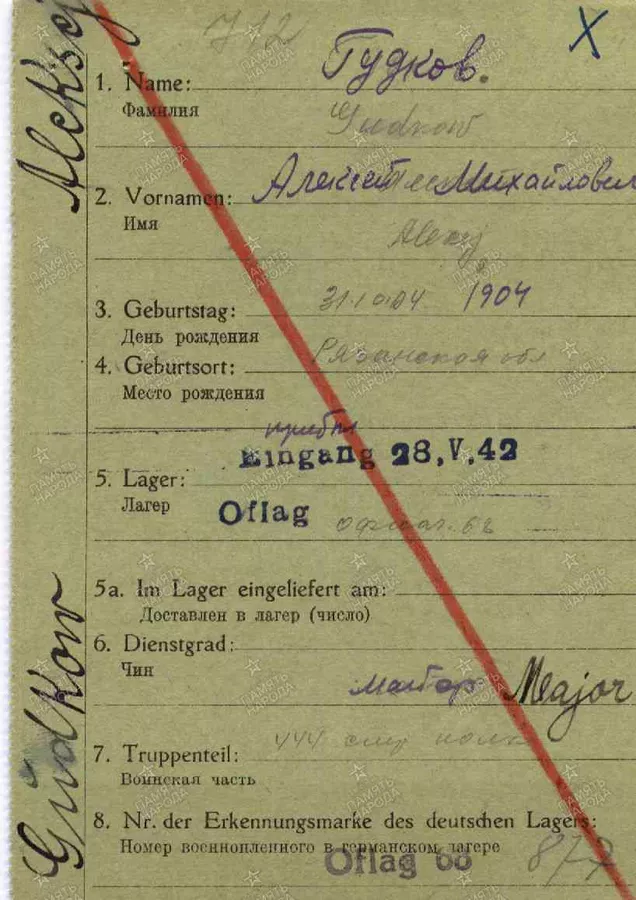 712
X
Aleksej
1. Name: Гудков.
Фамилия
Gudkow
2. Vornamen: Алексей Михайлович
Имя
Alexej
3. Geburtstag: 31.10.04 1904
День рождения
4. Geburtsort: Рязанской обл
Место рождения
прибыл
Eingang 28.V.42
5. Lager:
Лагерь
Oflag офлаг. 62
5a. Im Lager eingeliefert am:
Доставлен в лагер (число)
6. Dienstgrad:
Чин
майор Major
7. Truppenteil: 444 стр полк
Воинская часть
8. Nr. der Erkennungsmarke des deutschen Lagers:
Номер военнопленного в германском лагере
Oflag 877
Güdkow
ПАМЯТЬ НАРОДА